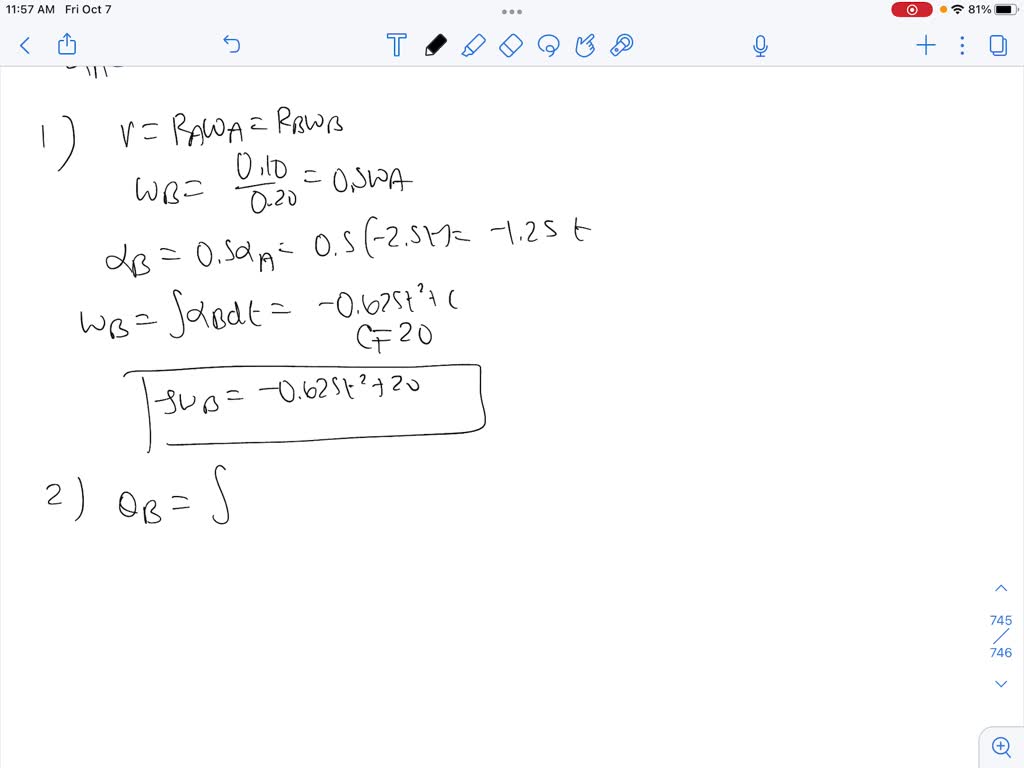 11:57 AM Fri Oct 7
81%
1) V = R_Aω_A = R_Bω_B
ω_B = 0.10/0.20 = 0.5ω_A
α_B = 0.5α_A = 0.5(-2.5t) = -1.25 t
ω_B = ∫α_B dt = -0.625t² + C
C = 20
ω_B = -0.625t² + 20
2) θ_B = ∫
T
745
746